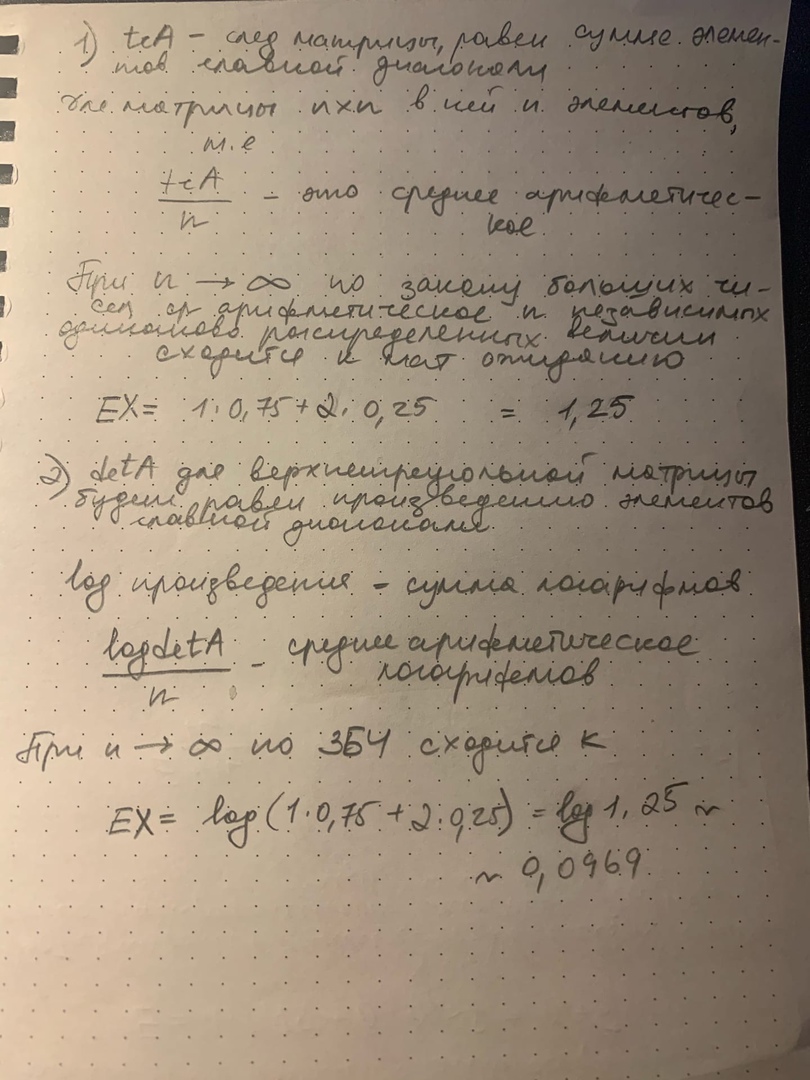 1) trA – след матрицы, равен сумме элемен-
тов главной диагонали
для матрицы nxn в ней n элементов,
т.е
trA
n
– это среднее арифметичес-
кое
При n → ∞ по закону больших чи-
сел ср арифметическое n независимых
одинаково распределенных величин
сходится к мат ожиданию
EX = 1·0,75 + 2·0,25 = 1,25
2) detA для верхнетреугольной матрицы
будет равен произведению элементов
главной диагонали.
log произведения – сумма логарифмов
logdetA
n
– среднее арифметическое
логарифмов
При n → ∞ по ЗБЧ сходится к
EX = log(1·0,75 + 2·0,25) = log 1,25 ~
~ 0,0969